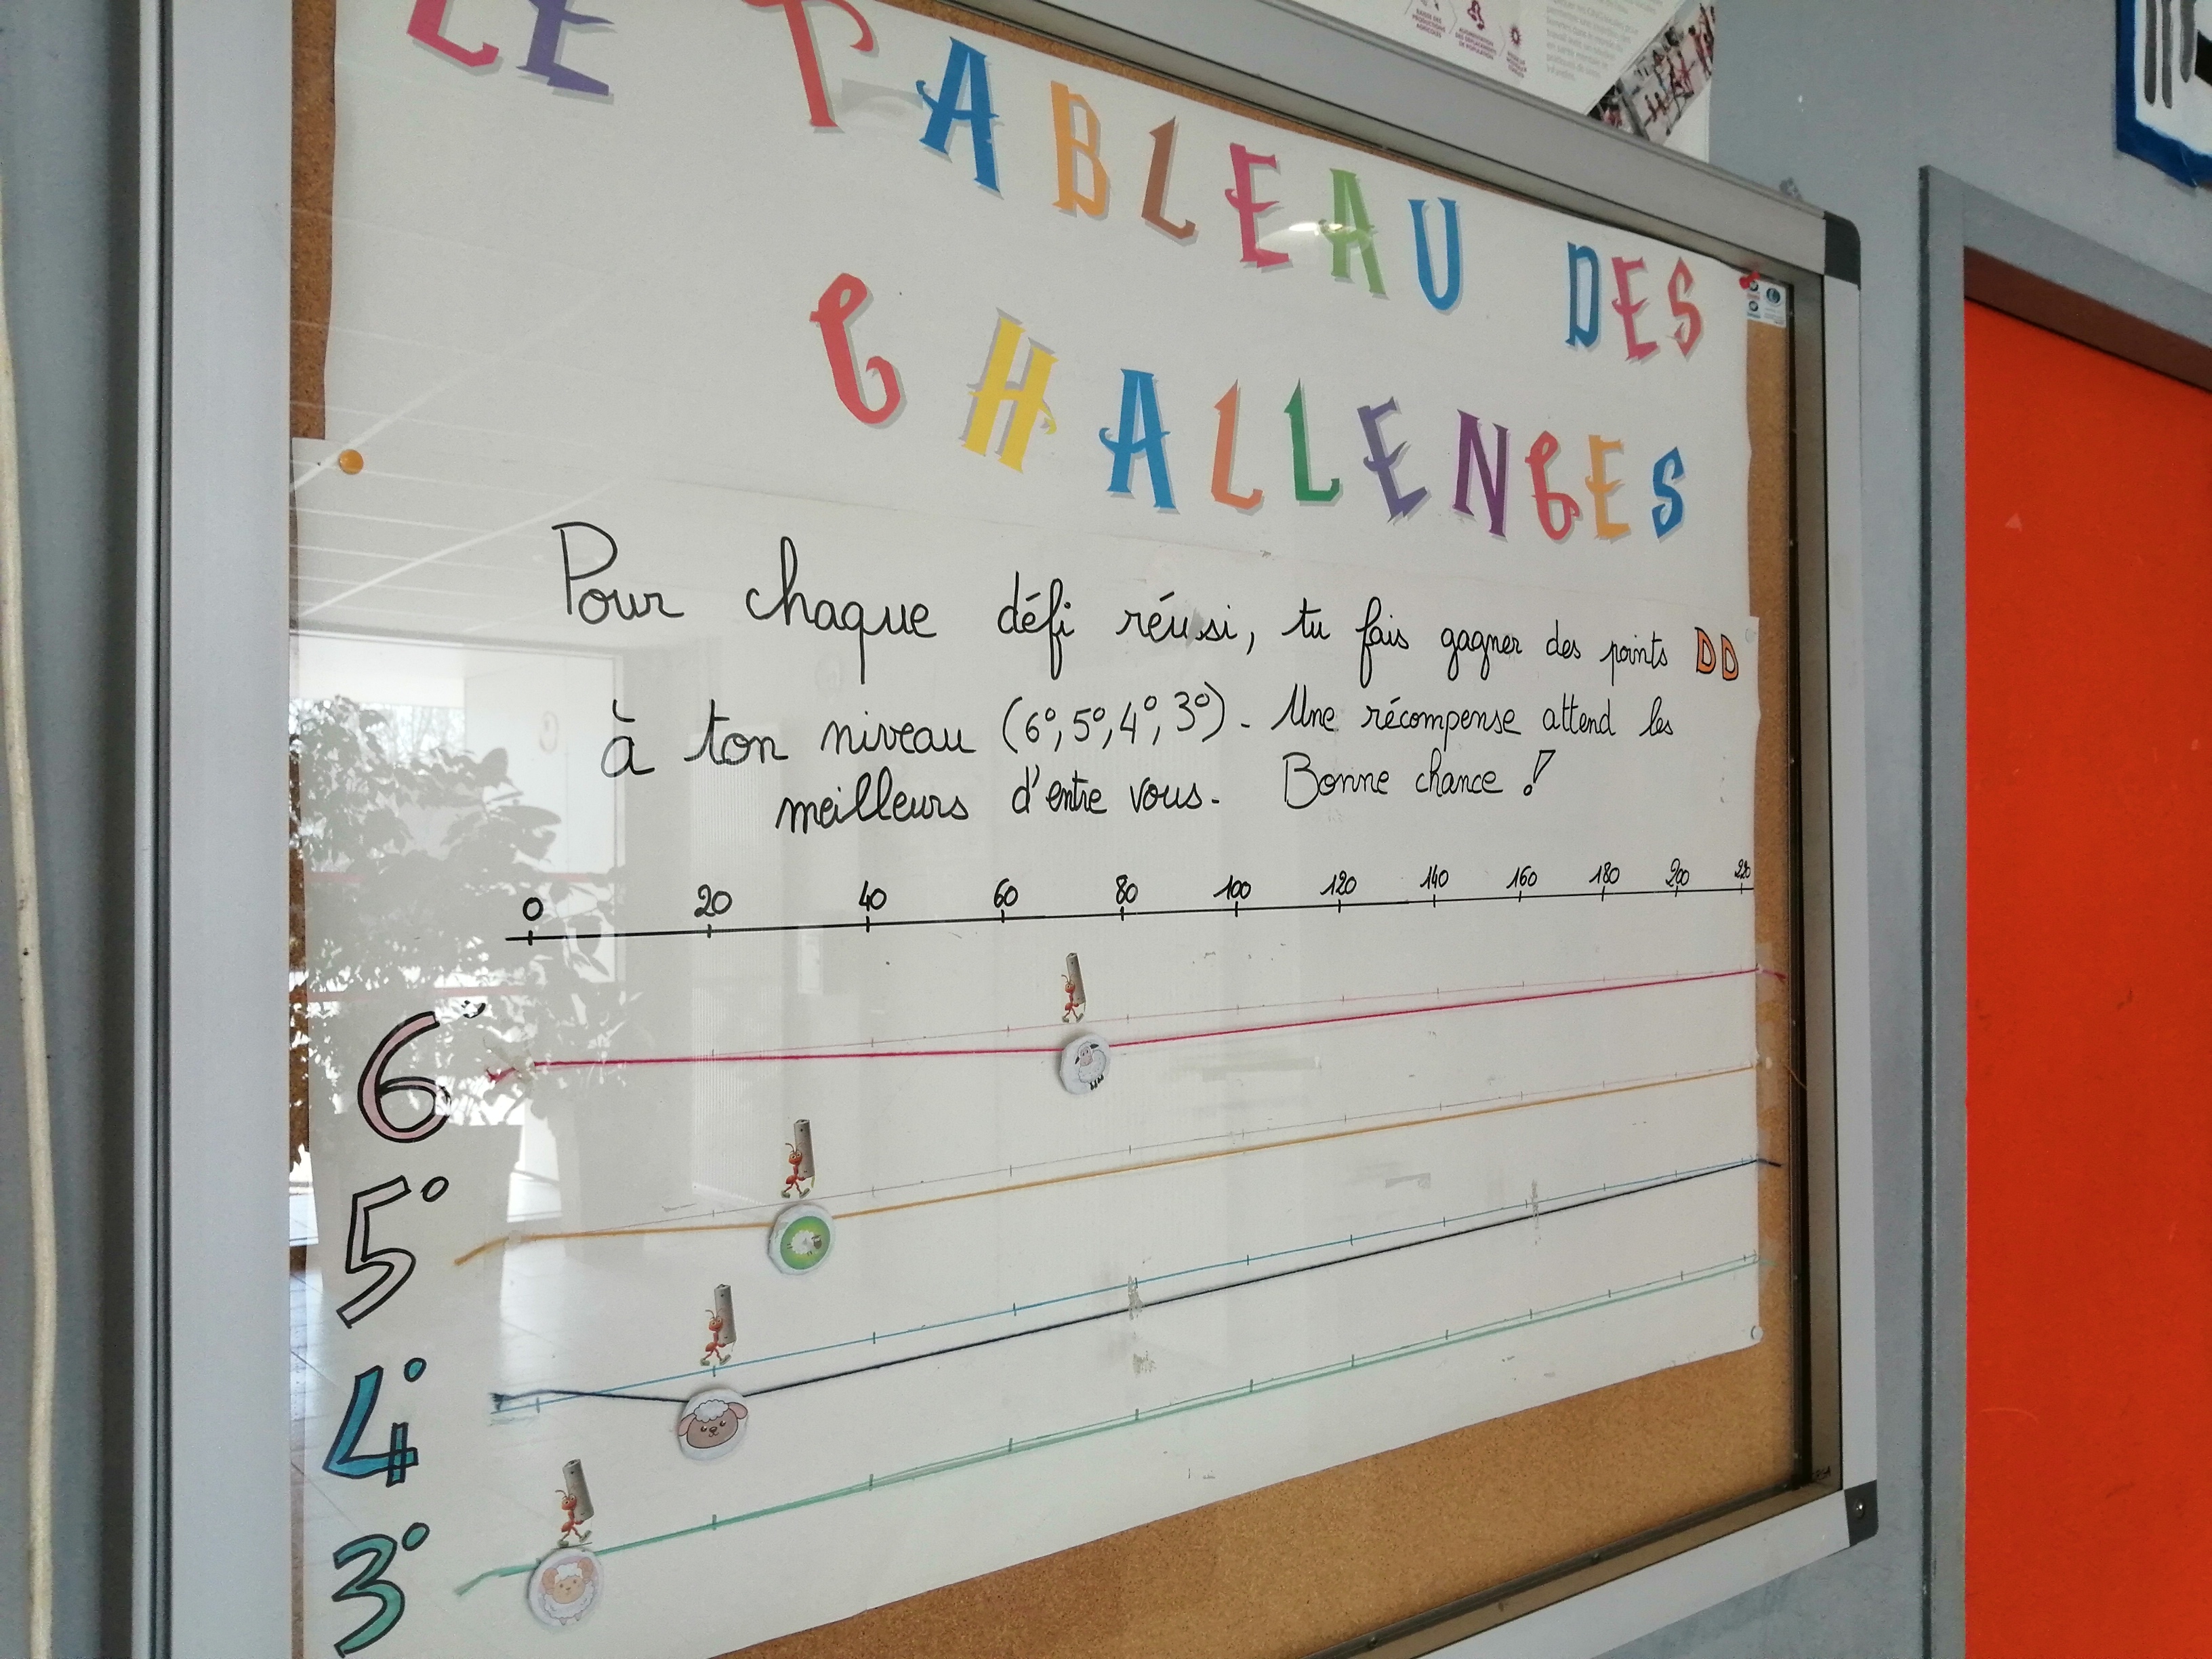 LE TABLEAU DES
CHALLENGES
Pour chaque défi réussi, tu fais gagner des points DD
à ton niveau (6°, 5°, 4°, 3°). Une récompense attend les
meilleurs d'entre vous. Bonne chance !
0 20 40 60 80 100 120 140 160 180 200 220
6°
5°
4°
3°